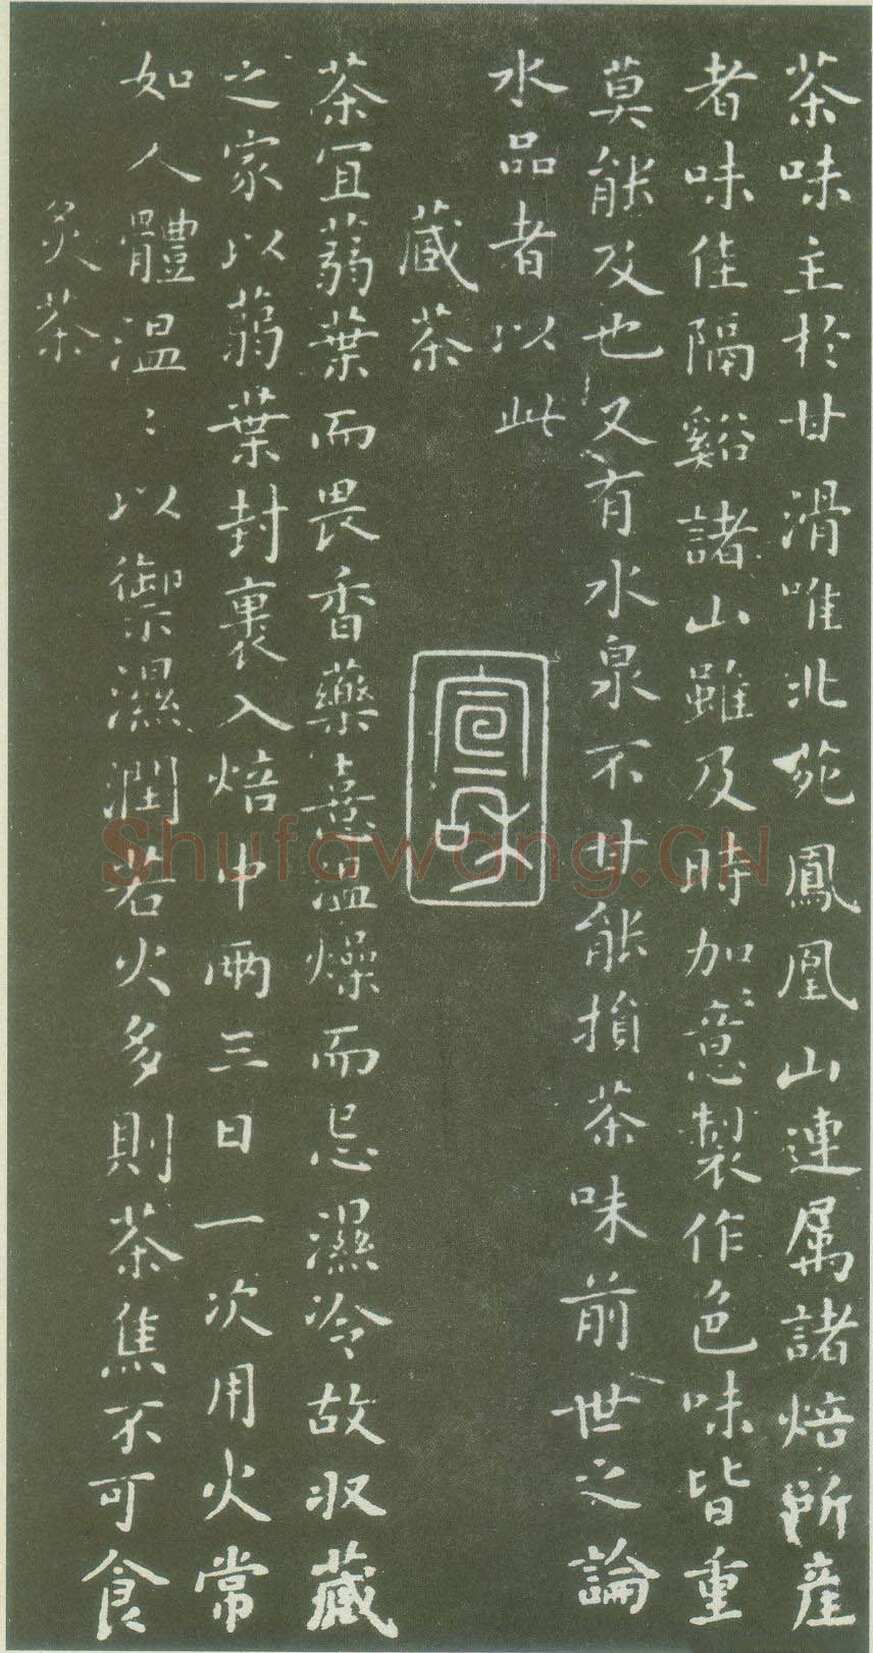 茶味主於甘滑唯北苑鳳凰山連屬諸焙所産
者味佳隔谿諸山雖及時加意製作色味皆重
莫能及也又有水泉不甘能損茶味前世之論
水品者以此
藏茶
茶宜蒻葉而畏香藥憙溫燥而忌濕冷故収藏
之家以蒻葉封裹入焙中兩三日一次用火常
如人體溫:以禦濕潤若火多則茶焦不可食
炙茶
Shufawang.CN